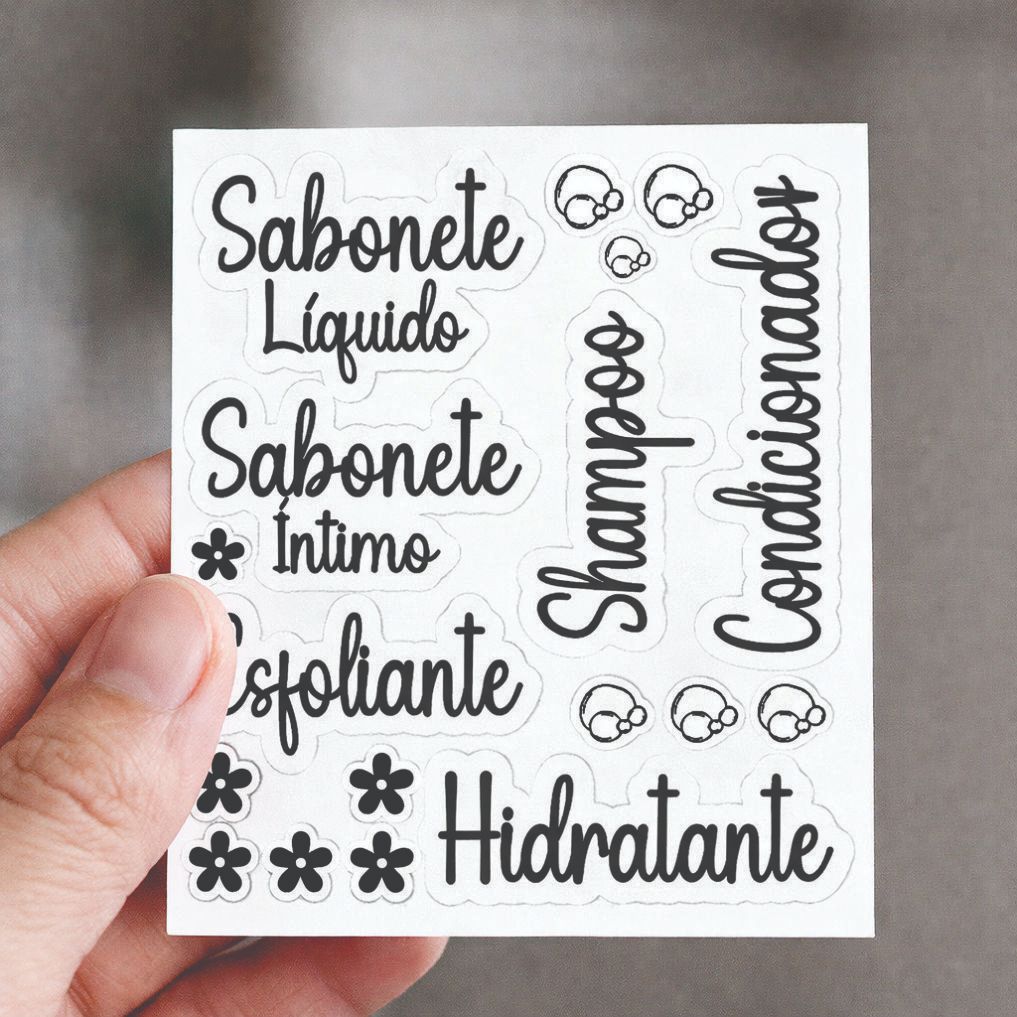 Sabonete
Líquido
Sabonete
Íntimo
Esfoliante
Shampoo
Condicionador
Hidratante